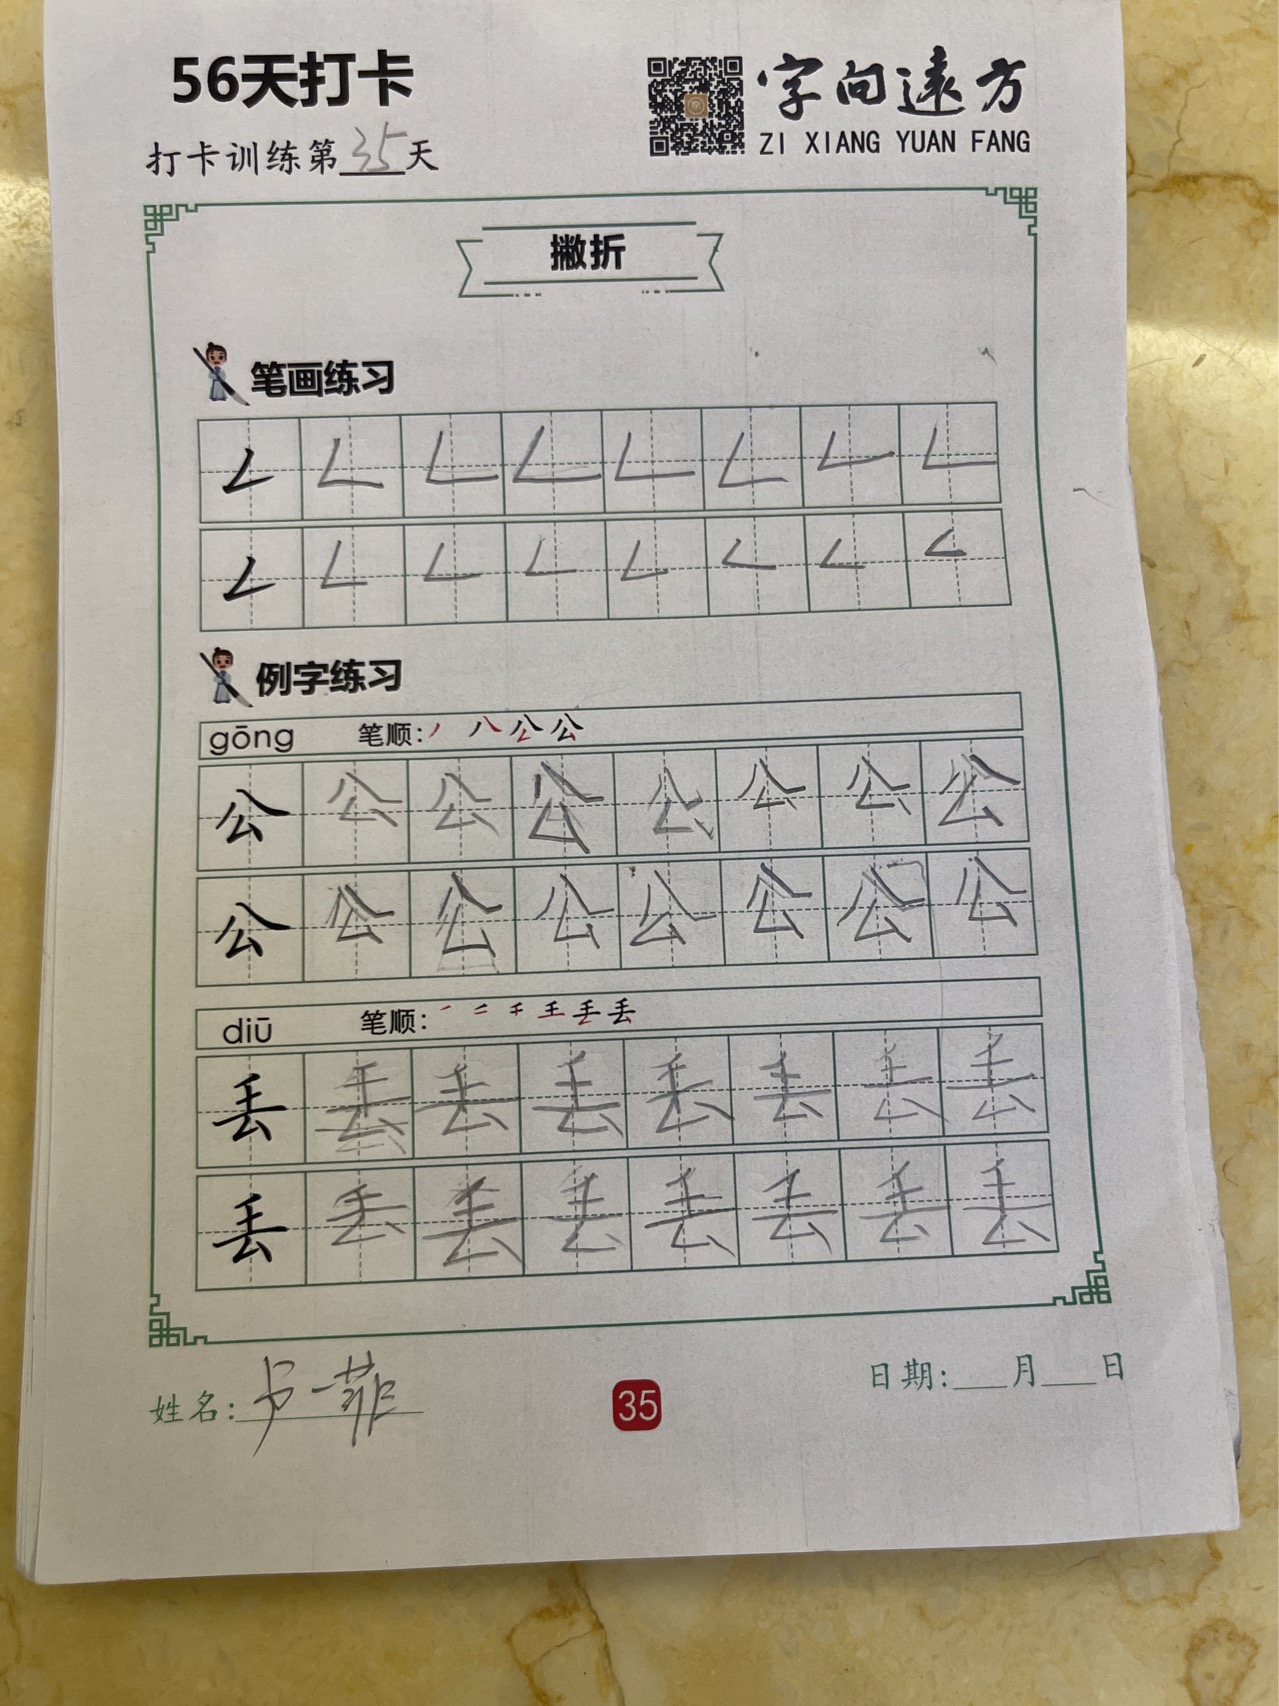 56天打卡
字向远方
ZI XIANG YUAN FANG
打卡训练第35天
撇折
笔画练习
𠃋 𠃋 𠃋 𠃋 𠃋 𠃋 𠃋 𠃋
𠃋 𠃋 𠃋 𠃋 𠃋 𠃋 𠃋 𠃋
例字练习
gōng 笔顺:
公 公 公 公 公 公 公 公
公 公 公 公 公 公 公 公
diū 笔顺:
丢 丢 丢 丢 丢 丢 丢 丢
丢 丢 丢 丢 丢 丢 丢 丢
姓名: 一菲
35
日期:___月___日